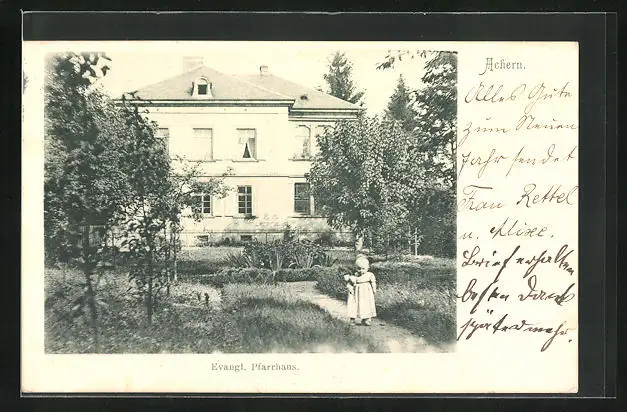 Achern.
Alles Gute
zum Neuen
Jahr sendet
Frau Rettel
u. Alixe.
Brief erhalten
besten Dank
später mehr.
Evangl. Pfarrhaus.